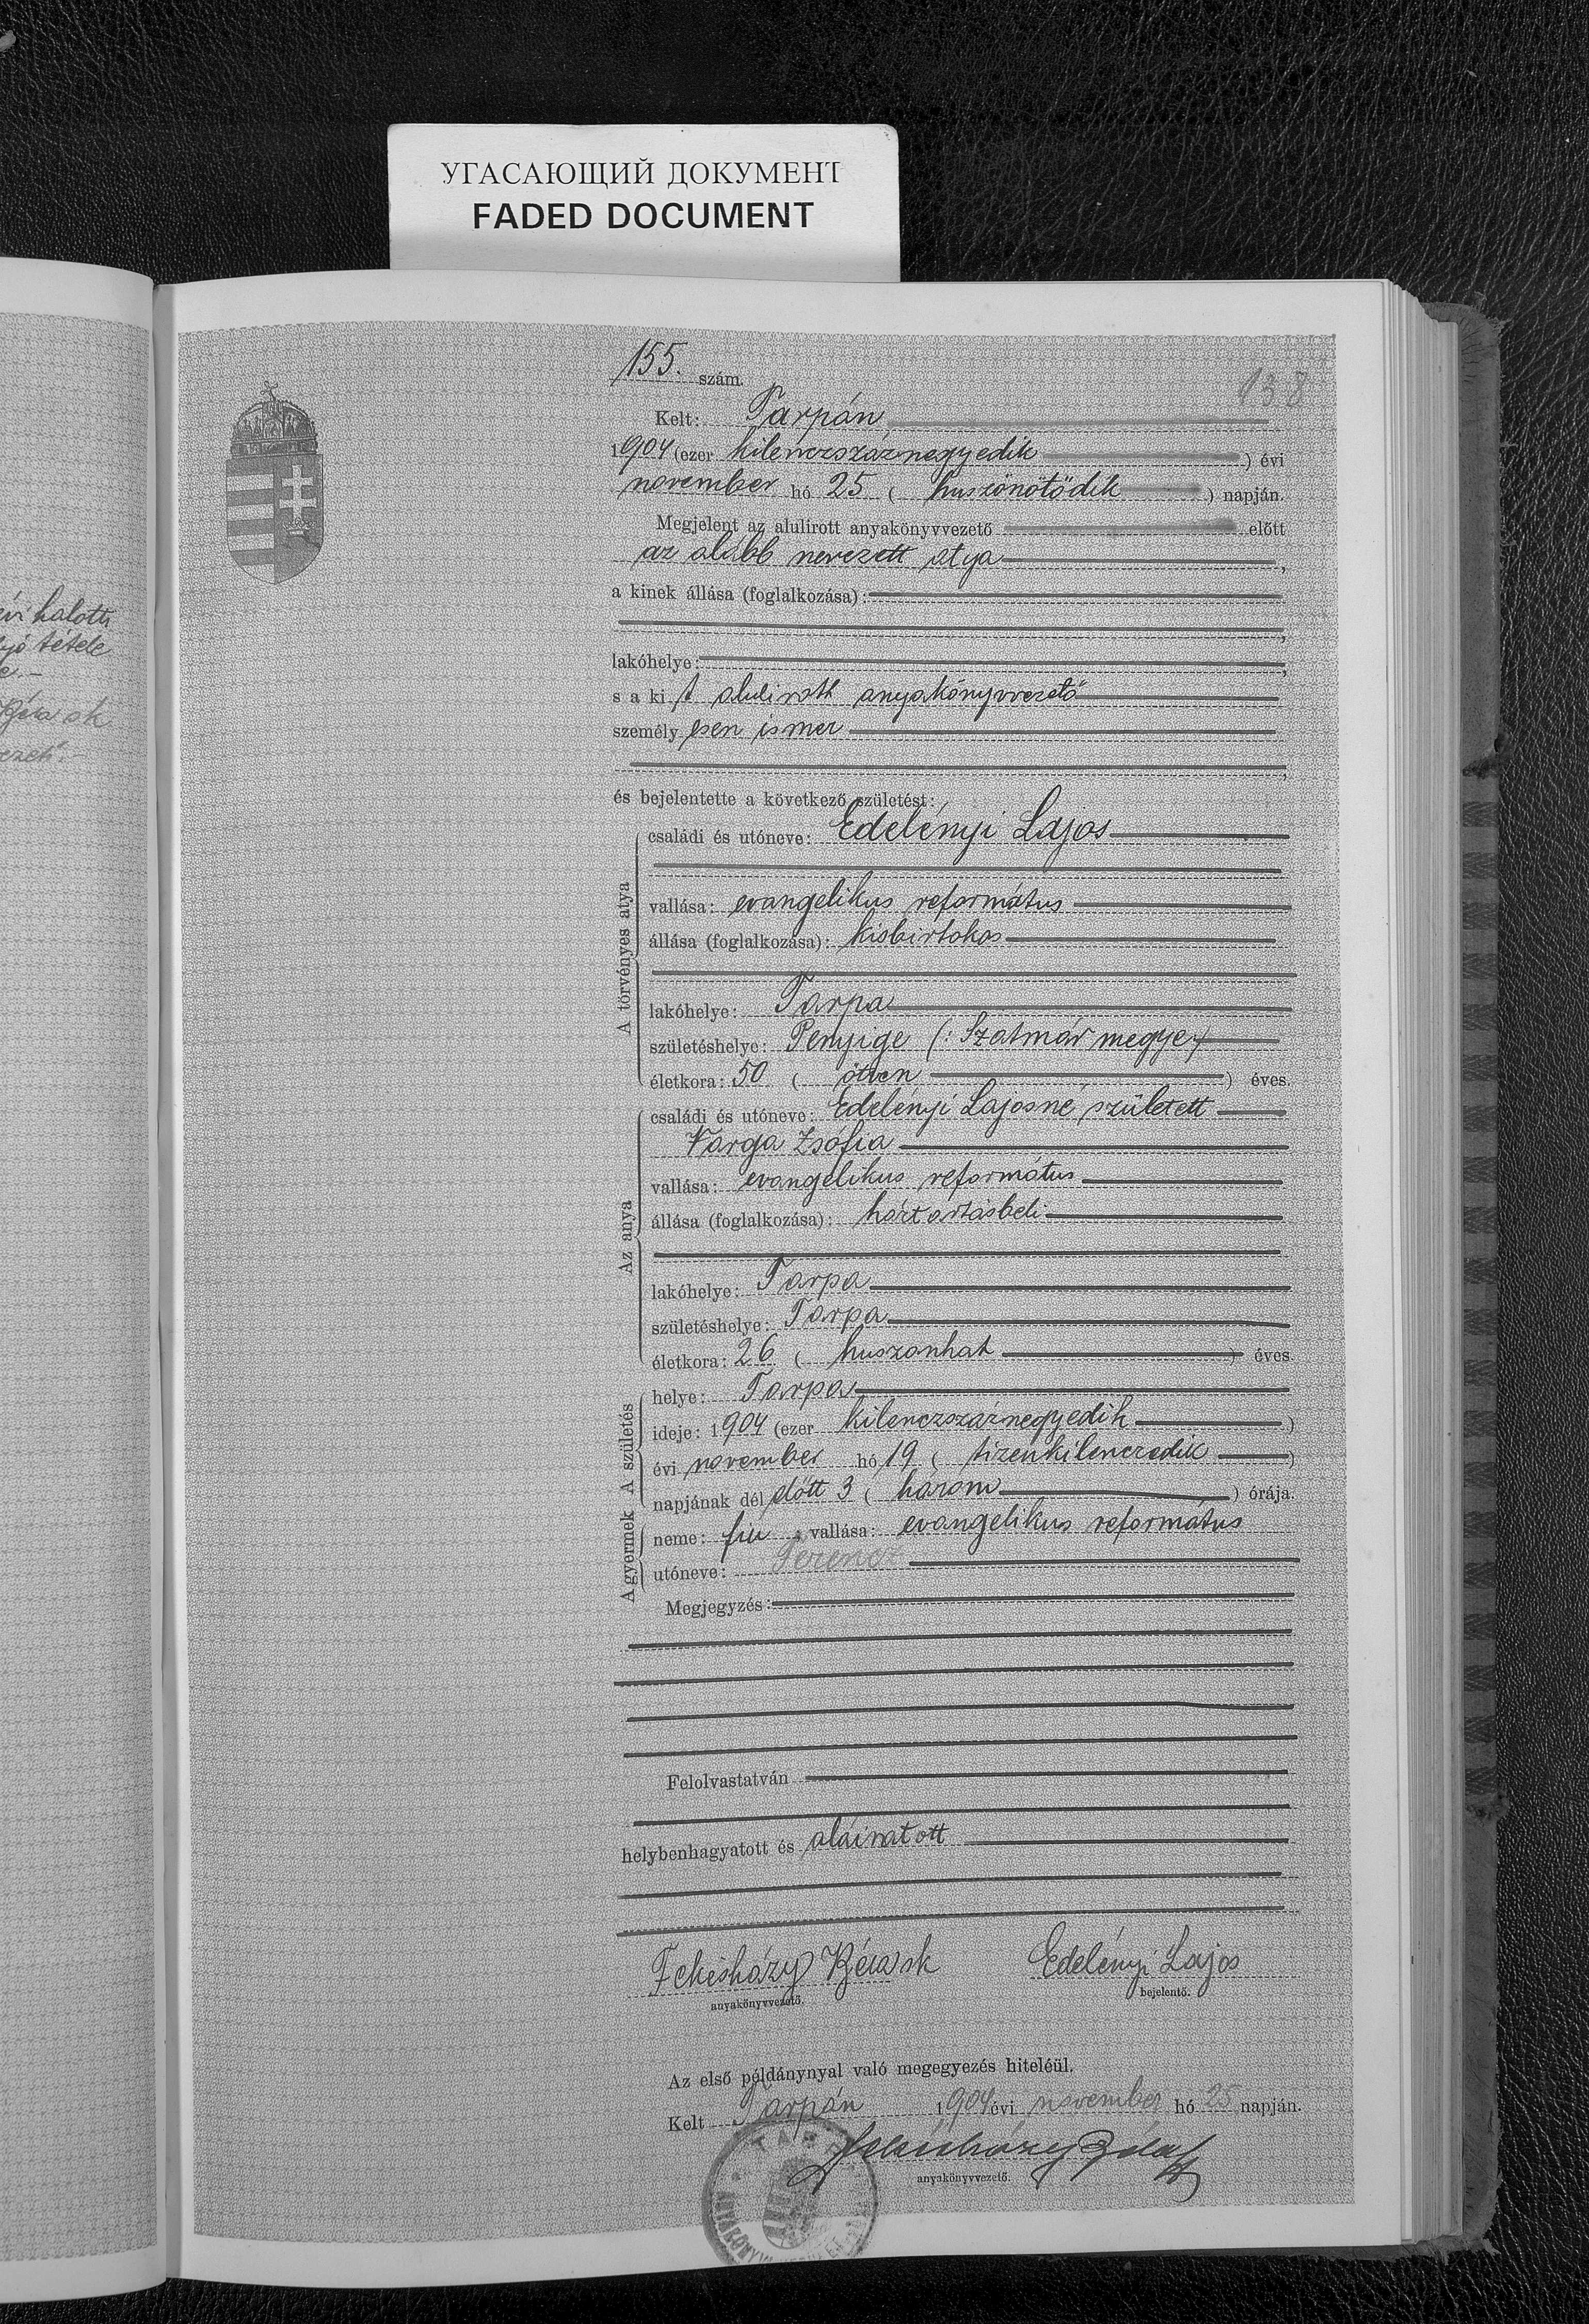 УГАСАЮЩИЙ ДОКУМЕНТ
FADED DOCUMENT
halotti
tétele
Béla sk
155. szám.
138
Kelt: Tarpán
1904 (ezer kilenczszáznegyedik) évi
november hó 25 (huszonötödik) napján.
Megjelent az alulirott anyakönyvvezető előtt
az alább nevezett atya,
a kinek állása (foglalkozása):
,
lakóhelye:,
s a kit alulirott anyakönyvvezető
személyesen ismer
,
és bejelentette a következő születést:
A törvényes atya
családi és utóneve: Edelényi Lajos
vallása: evangelikus református
állása (foglalkozása): kisbirtokos
lakóhelye: Tarpa
születéshelye: Penyige (: Szatmár megye)
életkora: 50 (ötven) éves.
Az anya
családi és utóneve: Edelényi Lajosné született
Varga Zsófia
vallása: evangelikus református
állása (foglalkozása): háztartásbeli
lakóhelye: Tarpa
születéshelye: Tarpa
életkora: 26 (huszonhat) éves.
A születés
helye: Tarpa
ideje: 1904 (ezer kilenczszáznegyedik)
évi november hó 19 (tizenkilenczedik)
napjának dél előtt 3 (három) órája.
A gyermek
neme: fiu vallása: evangelikus református
utóneve: Ferencz
Megjegyzés:
Felolvastatván
helybenhagyatott és aláiratott
Fekésházy Béla sk Edelényi Lajos
anyakönyvvezető. bejelentő.
Az első példánynyal való megegyezés hiteléül.
Kelt Tarpán 1904 évi november hó 25 napján.
Fekésházy Béla
anyakönyvvezető.